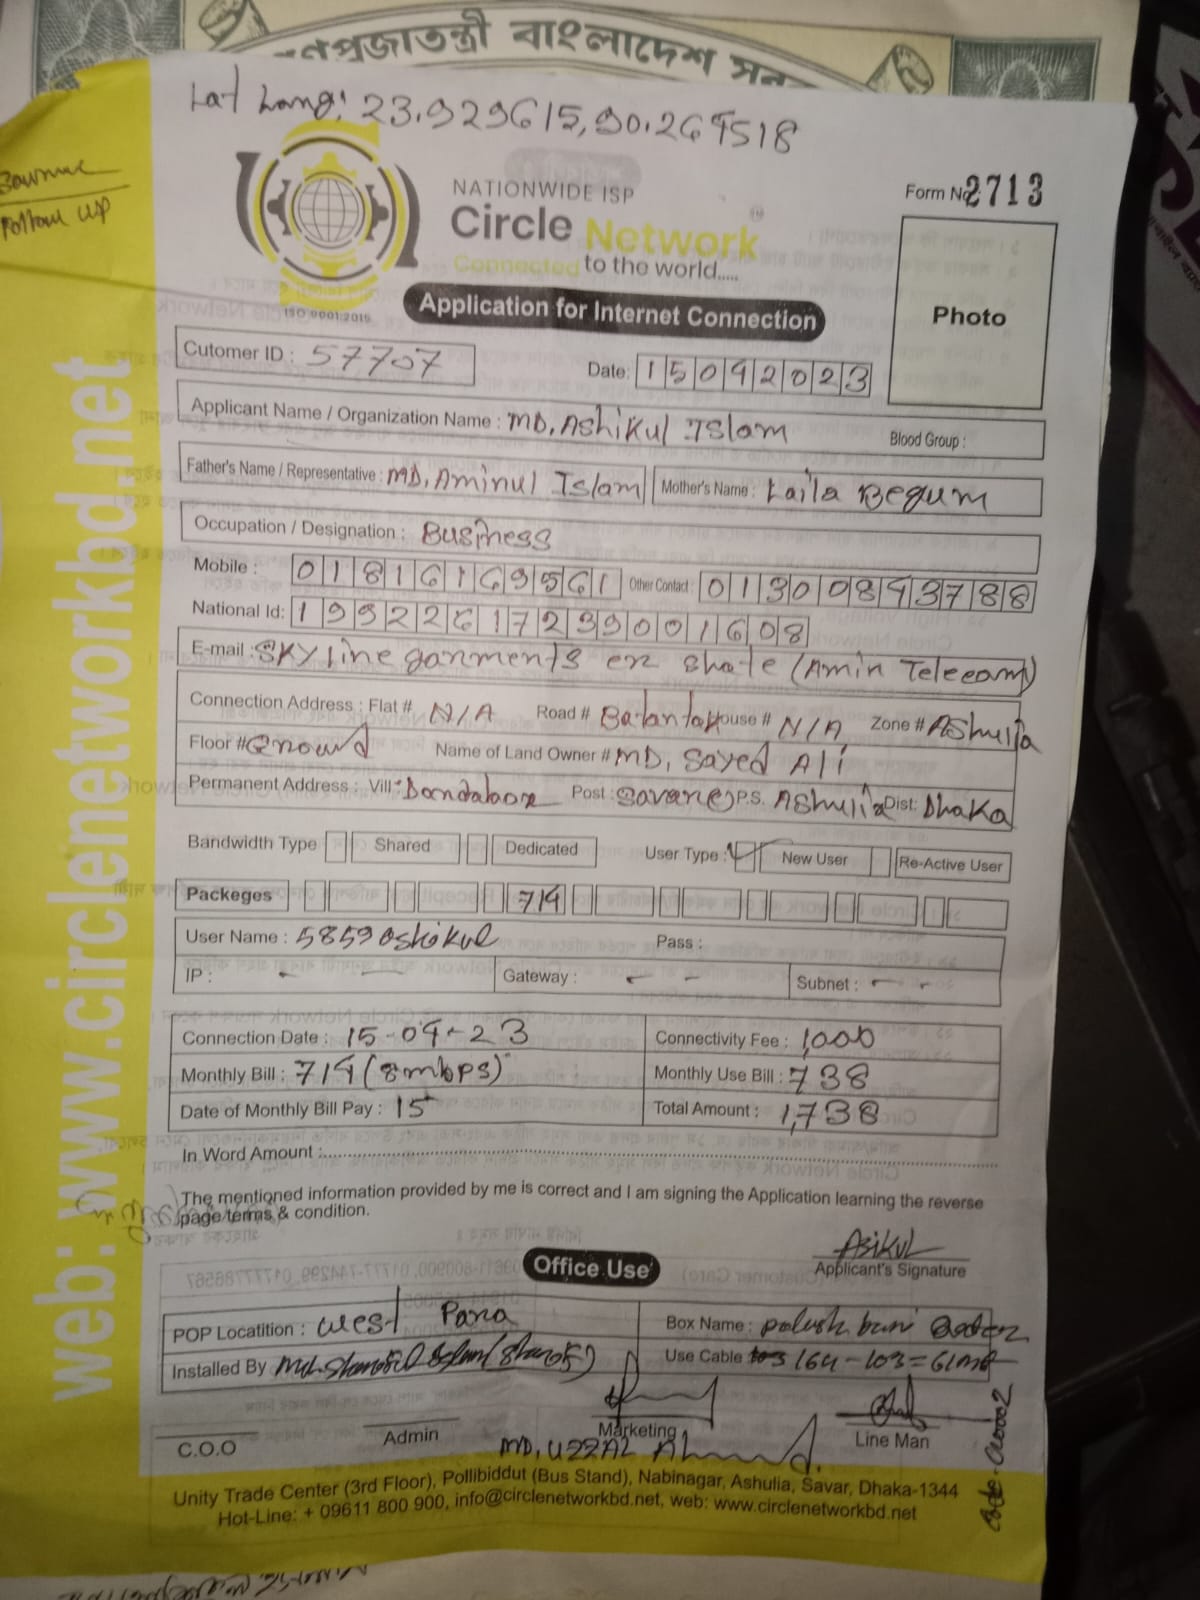 গণপ্রজাতন্ত্রী বাংলাদেশ
Lat Long: 23.929615, 90.269518
Follow up
NATIONWIDE ISP
Circle Network
Connected to the world.....
ISO 9001:2015
Form No 2713
Photo
Application for Internet Connection
Cutomer ID : 57707 Date: 15042023
Applicant Name / Organization Name : MD, Ashikul Islam Blood Group :
Father's Name / Representative : MD, Aminul Islam Mother's Name : Laila Begum
Occupation / Designation : Business
Mobile : 01816169561 Other Contact : 01300843788
National Id: 19922617239001608
E-mail : SKYline garments er shate (Amin Teleeam)
Connection Address : Flat # N/A Road # House # N/A Zone # AShulia
Floor # Name of Land Owner # MD, Sayed Ali
Permanent Address : Vill: Post : P.S. AShulia Dist: DhaKa
Bandwidth Type Shared Dedicated User Type : New User Re-Active User
Packeges 714
User Name : 5859 ashikul Pass :
IP : - - Gateway : - - Subnet : - -
Connection Date : 15-04-23 Connectivity Fee : 1,000
Monthly Bill : 714 (8mbps) Monthly Use Bill : 738
Date of Monthly Bill Pay : 15 Total Amount : 1,738
In Word Amount :
The mentioned information provided by me is correct and I am signing the Application learning the reverse
page terms & condition.
ASiKUL
Applicant's Signature
Office Use
POP Locatition : West Para Box Name :
Installed By Use Cable 164-103=61
C.O.O Admin Marketing Line Man
MD, UZZAL Ahmed.
Unity Trade Center (3rd Floor), Pollibiddut (Bus Stand), Nabinagar, Ashulia, Savar, Dhaka-1344
Hot-Line: + 09611 800 900, info@circlenetworkbd.net, web: www.circlenetworkbd.net
web: www.circlenetworkbd.net